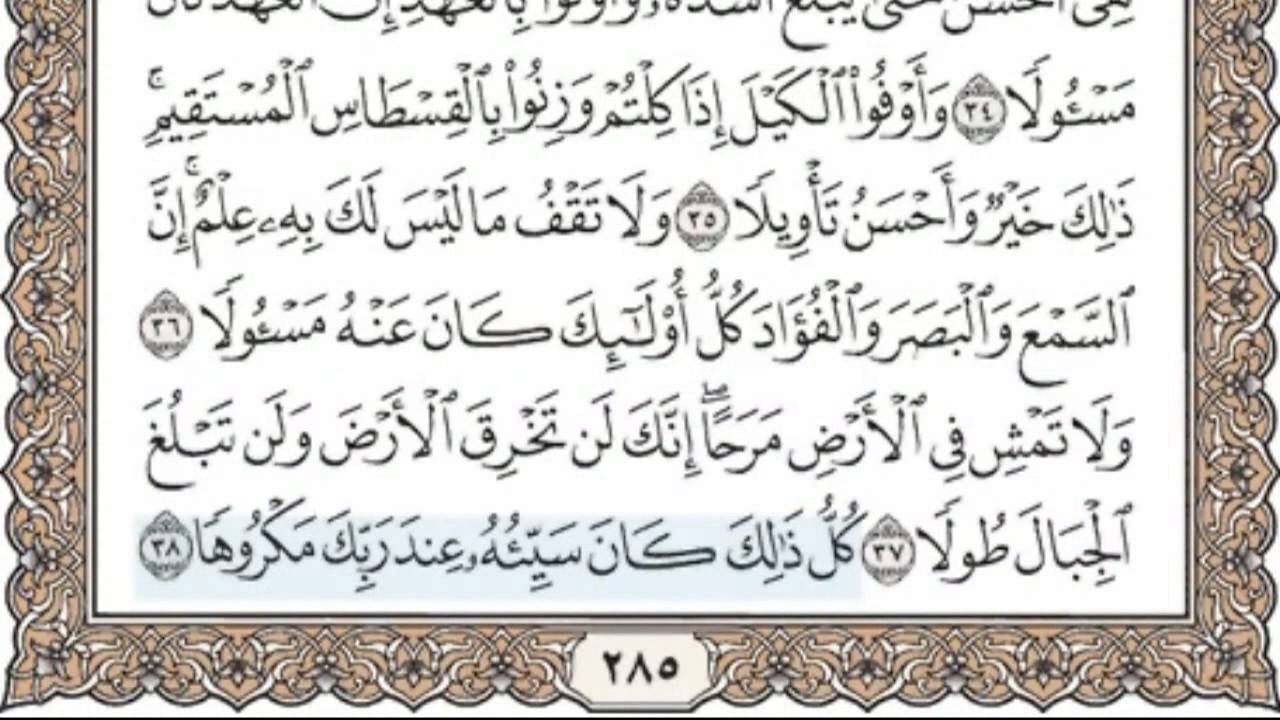 هِىَ أَحْسَنُ حَتَّىٰ يَبْلُغَ أَشُدَّهُۥ وَأَوْفُوا۟ بِٱلْعَهْدِ إِنَّ ٱلْعَهْدَ كَانَ
مَسْـُٔولًا ٣٤ وَأَوْفُوا۟ ٱلْكَيْلَ إِذَا كِلْتُمْ وَزِنُوا۟ بِٱلْقِسْطَاسِ ٱلْمُسْتَقِيمِ ۚ
ذَٰلِكَ خَيْرٌ وَأَحْسَنُ تَأْوِيلًا ٣٥ وَلَا تَقْفُ مَا لَيْسَ لَكَ بِهِۦ عِلْمٌ ۚ إِنَّ
ٱلسَّمْعَ وَٱلْبَصَرَ وَٱلْفُؤَادَ كُلُّ أُو۟لَـٰٓئِكَ كَانَ عَنْهُ مَسْـُٔولًا ٣٦
وَلَا تَمْشِ فِى ٱلْأَرْضِ مَرَحًا ۖ إِنَّكَ لَن تَخْرِقَ ٱلْأَرْضَ وَلَن تَبْلُغَ
ٱلْجِبَالَ طُولًا ٣٧ كُلُّ ذَٰلِكَ كَانَ سَيِّئُهُۥ عِندَ رَبِّكَ مَكْرُوهًا ٣٨
٢٨٥